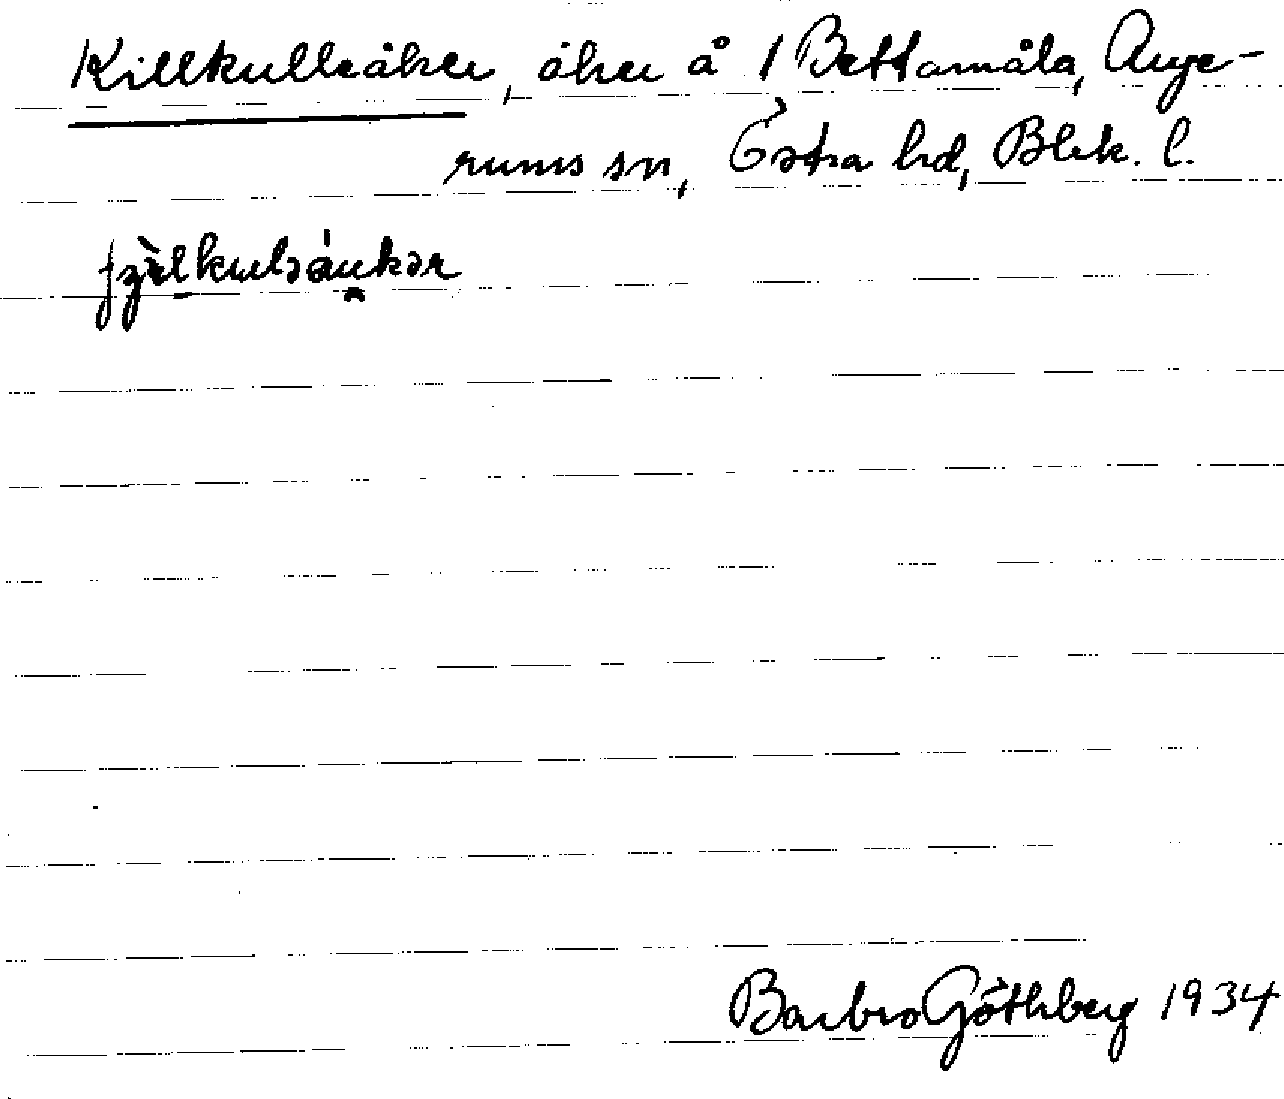 Killkulleåker, åker å 1 Bettamåla, Auge-
rums sn, Östra hd, Blek. l.
Barbro Göthberg 1934